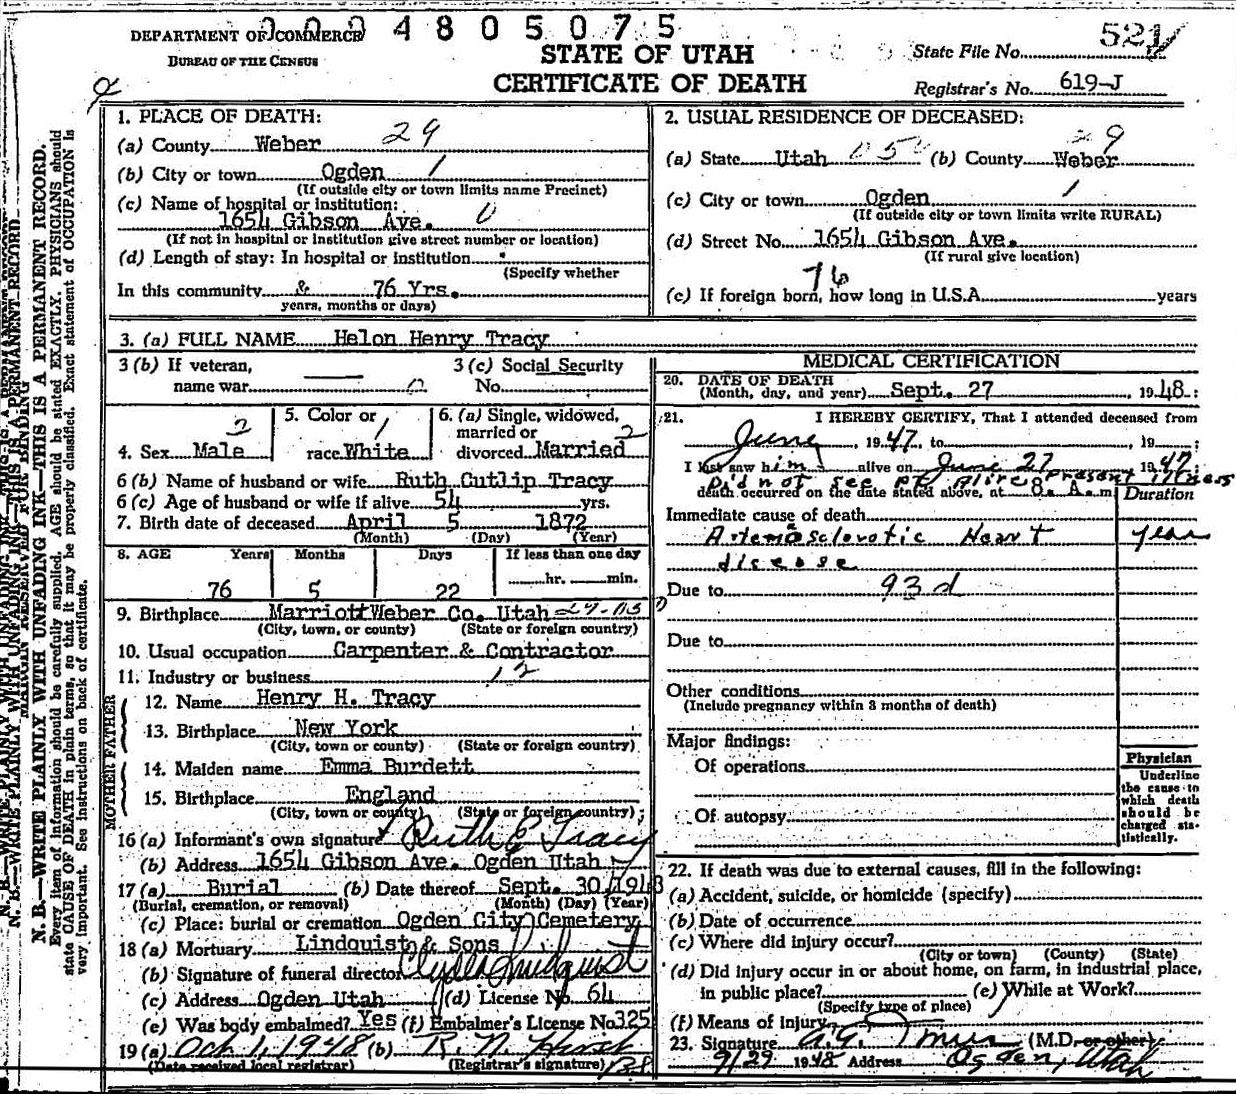 DEPARTMENT OF COMMERCE
BUREAU OF THE CENSUS
4805075
STATE OF UTAH
CERTIFICATE OF DEATH
State File No. 521
Registrar's No. 619-J
1. PLACE OF DEATH:
(a) County Weber 29
(b) City or town Ogden 1
(If outside city or town limits name Precinct)
(c) Name of hospital or institution:
1654 Gibson Ave. 0
(If not in hospital or institution give street number or location)
(d) Length of stay: In hospital or institution
(Specify whether
In this community & 76 Yrs.
years, months or days)
2. USUAL RESIDENCE OF DECEASED:
(a) State Utah (b) County Weber
(c) City or town Ogden 1
(If outside city or town limits write RURAL)
(d) Street No. 1654 Gibson Ave.
(If rural give location)
76
(e) If foreign born, how long in U.S.A. years
3. (a) FULL NAME Helon Henry Tracy
3 (b) If veteran,
name war 0
3 (c) Social Security
No.
4. Sex Male 2
5. Color or
race White 1
6. (a) Single, widowed,
married or
divorced Married 2
6 (b) Name of husband or wife Ruth Cutlip Tracy
6 (c) Age of husband or wife if alive 54 yrs.
7. Birth date of deceased April 5 1872
(Month) (Day) (Year)
8. AGE Years Months Days If less than one day
76 5 22 hr. min.
9. Birthplace Marriott Weber Co. Utah
(City, town, or county) (State or foreign country)
10. Usual occupation Carpenter & Contractor
11. Industry or business 12
FATHER
12. Name Henry H. Tracy
13. Birthplace New York
(City, town or county) (State or foreign country)
MOTHER
14. Maiden name Emma Burdett
15. Birthplace England
(City, town or county) (State or foreign country)
16 (a) Informant's own signature Ruth C Tracy
(b) Address 1654 Gibson Ave. Ogden Utah
17 (a) Burial (b) Date thereof Sept. 30, 1948
(Burial, cremation, or removal) (Month) (Day) (Year)
(c) Place: burial or cremation Ogden City Cemetery
18 (a) Mortuary Lindquist & Sons
(b) Signature of funeral director Clyde Lindquist
(c) Address Ogden Utah (d) License No. 64
(e) Was body embalmed? Yes (f) Embalmer's License No. 325
19 (a) Oct 1, 1948 (b) R. N. Hirst
(Date received local registrar) (Registrar's signature)
MEDICAL CERTIFICATION
20. DATE OF DEATH
(Month, day, and year) Sept. 27, 1948:
21. I HEREBY CERTIFY, That I attended deceased from
June, 1947 to , 19 ;
I last saw him alive on June 27 1947
Did not see pt alive present illness
death occurred on the date stated above, at 8 A. m Duration
Immediate cause of death
Arteriosclerotic Heart years
disease
Due to 93d
Due to
Other conditions
(Include pregnancy within 3 months of death)
Major findings:
Of operations
Of autopsy
Physician
Underline
the cause to
which death
should be
charged sta-
tistically.
22. If death was due to external causes, fill in the following:
(a) Accident, suicide, or homicide (specify)
(b) Date of occurrence
(c) Where did injury occur?
(City or town) (County) (State)
(d) Did injury occur in or about home, on farm, in industrial place,
in public place? (e) While at Work?
(Specify type of place)
(f) Means of injury
23. Signature (M.D. or other)
9/29 1948 Address Ogden, Utah
MARGIN RESERVED FOR BINDING
N. B.—WRITE PLAINLY WITH UNFADING INK—THIS IS A PERMANENT RECORD.
Every item of information should be carefully supplied. AGE should be stated EXACTLY. PHYSICIANS should
state CAUSE OF DEATH in plain terms, so that it may be properly classified. Exact statement of OCCUPATION is
very important. See instructions on back of certificate.